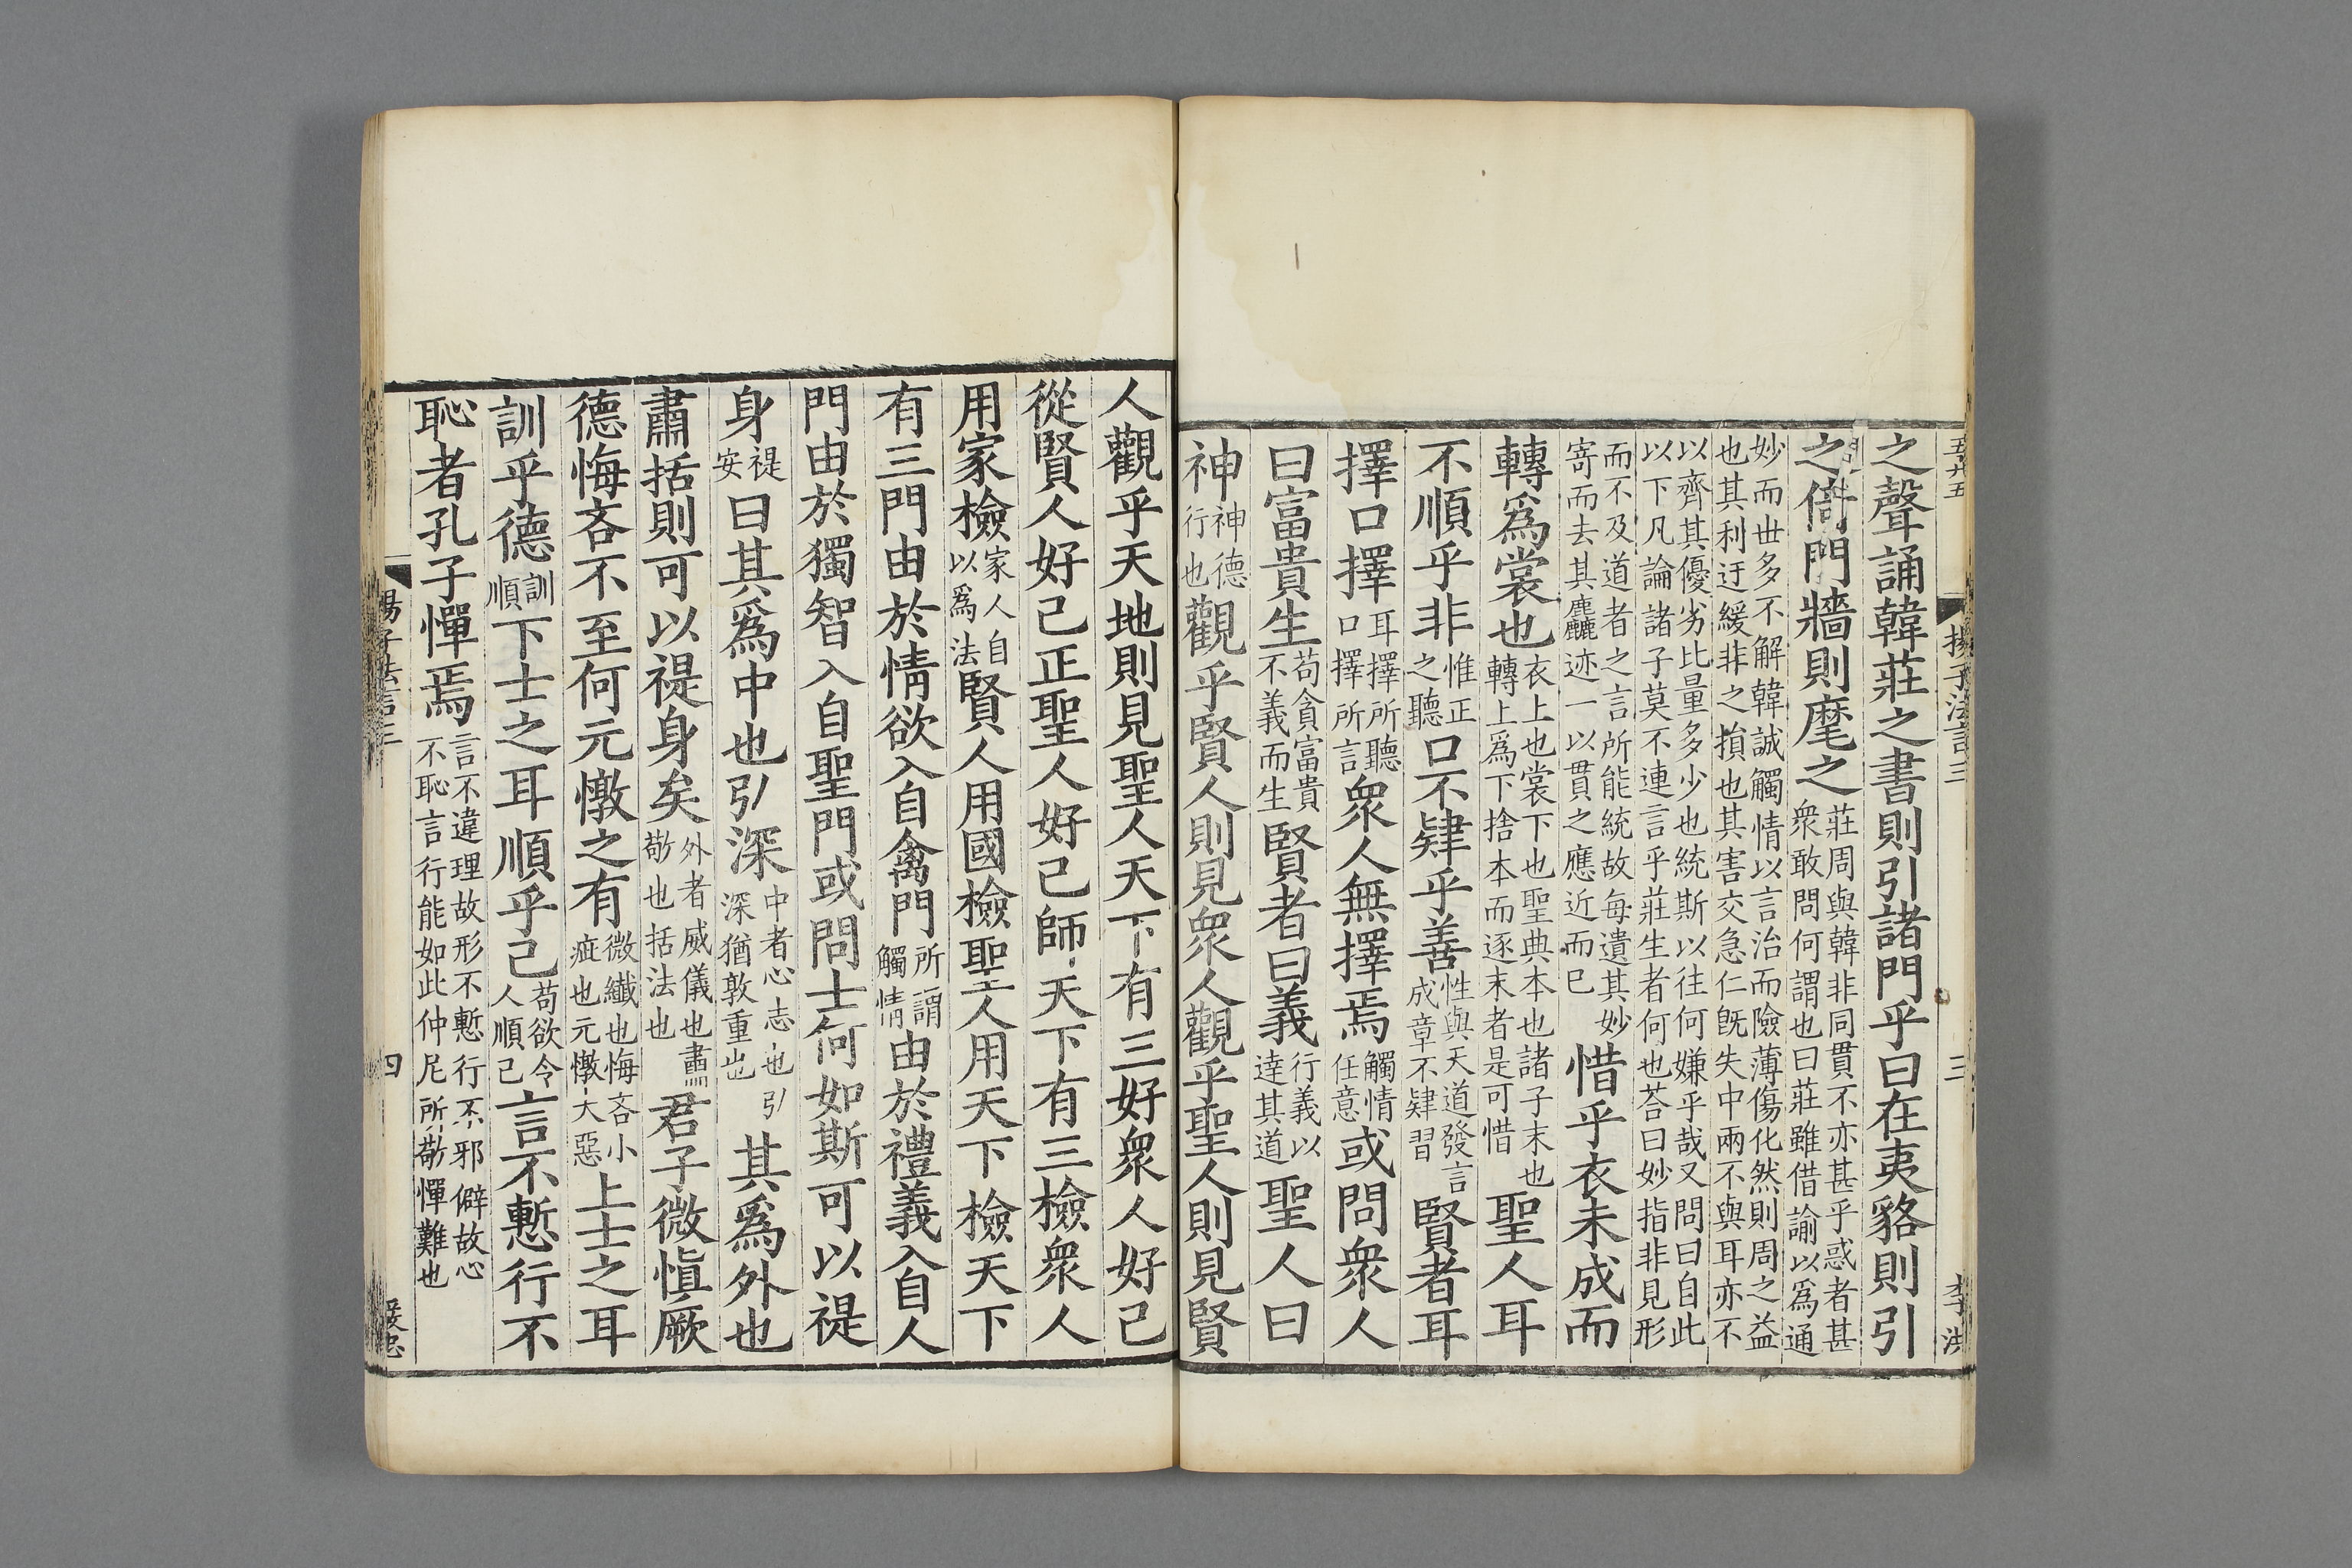 揚子法言三 三 李洪
之聲誦韓莊之書則引諸門乎曰在夷貉則引
之倚門牆則麾之莊周與韓非同貫不亦甚乎惑者甚衆敢問何謂也曰莊雖借諭以爲通
妙而世多不解韓誠觸情以言治而險薄傷化然則周之益也其利迂緩非之損也其害交急仁旣失中兩不與耳亦不
以齊其優劣比量多少也統斯以往何嫌乎哉又問曰自此以下凡論諸子莫不連言乎莊生者何也荅曰妙指非見形
而不及道者之言所能統故每遺其妙寄而去其麤迹一以貫之應近而已惜乎衣未成而
轉爲裳也衣上也裳下也聖典本也諸子末也轉上爲下捨本而逐末者是可惜聖人耳
不順乎非惟正之聽口不肄乎善性與天道發言成章不肄習賢者耳
擇口擇耳擇所聽口擇所言衆人無擇焉觸情任意或問衆人
曰富貴生苟貪富貴不義而生賢者曰義行義以達其道聖人曰
神神德行也觀乎賢人則見衆人觀乎聖人則見賢
人觀乎天地則見聖人天下有三好衆人好己
從賢人好己正聖人好己師天下有三檢衆人
用家檢家人自以爲法賢人用國檢聖人用天下檢天下
有三門由於情欲入自禽門所謂觸情由於禮義入自人
門由於獨智入自聖門或問士何如斯可以禔
身禔安曰其爲中也引深中者心志也引深猶敦重也其爲外也
肅括則可以禔身矣外者威儀也肅敬也括法也君子微愼厥
德悔吝不至何元憞之有微纖也悔吝小疵也元憞大惡上士之耳
訓乎德訓順下士之耳順乎己苟欲令人順己言不慙行不
恥者孔子憚焉言不違理故形不慙行不邪僻故心不恥言行能如此仲尼所敬憚難也
子法言三 四